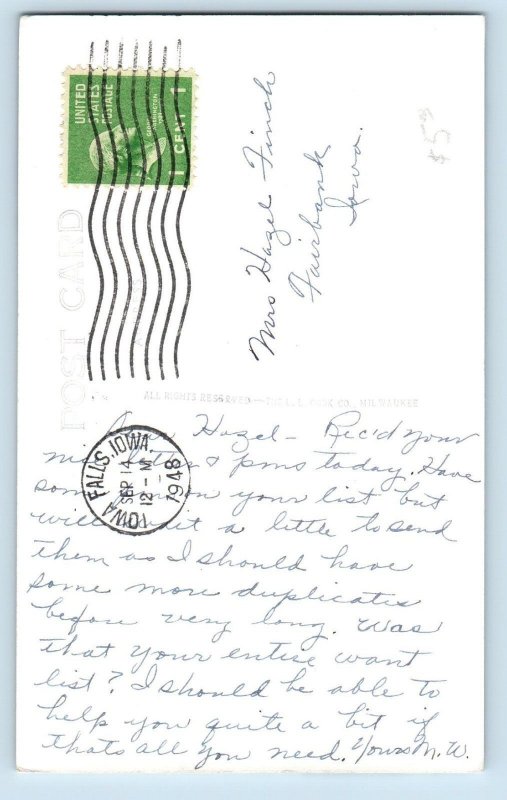 UNITED
STATES
POSTAGE
1 CENT 1
$5.00
Mrs Hazel Finch
Fairbank
Iowa.
POST CARD
ALL RIGHTS RESERVED—THE L.L. COOK CO., MILWAUKEE
IOWA FALLS, IOWA.
SEP 14
12 - M
1948
Hazel - Rec'd your
& pms today. Have
on your list but
will a little to send
them as I should have
some more duplicates
before very long. Was
that your entire want
list? I should be able to
help you quite a bit if
thats all you need. Yours M. W.